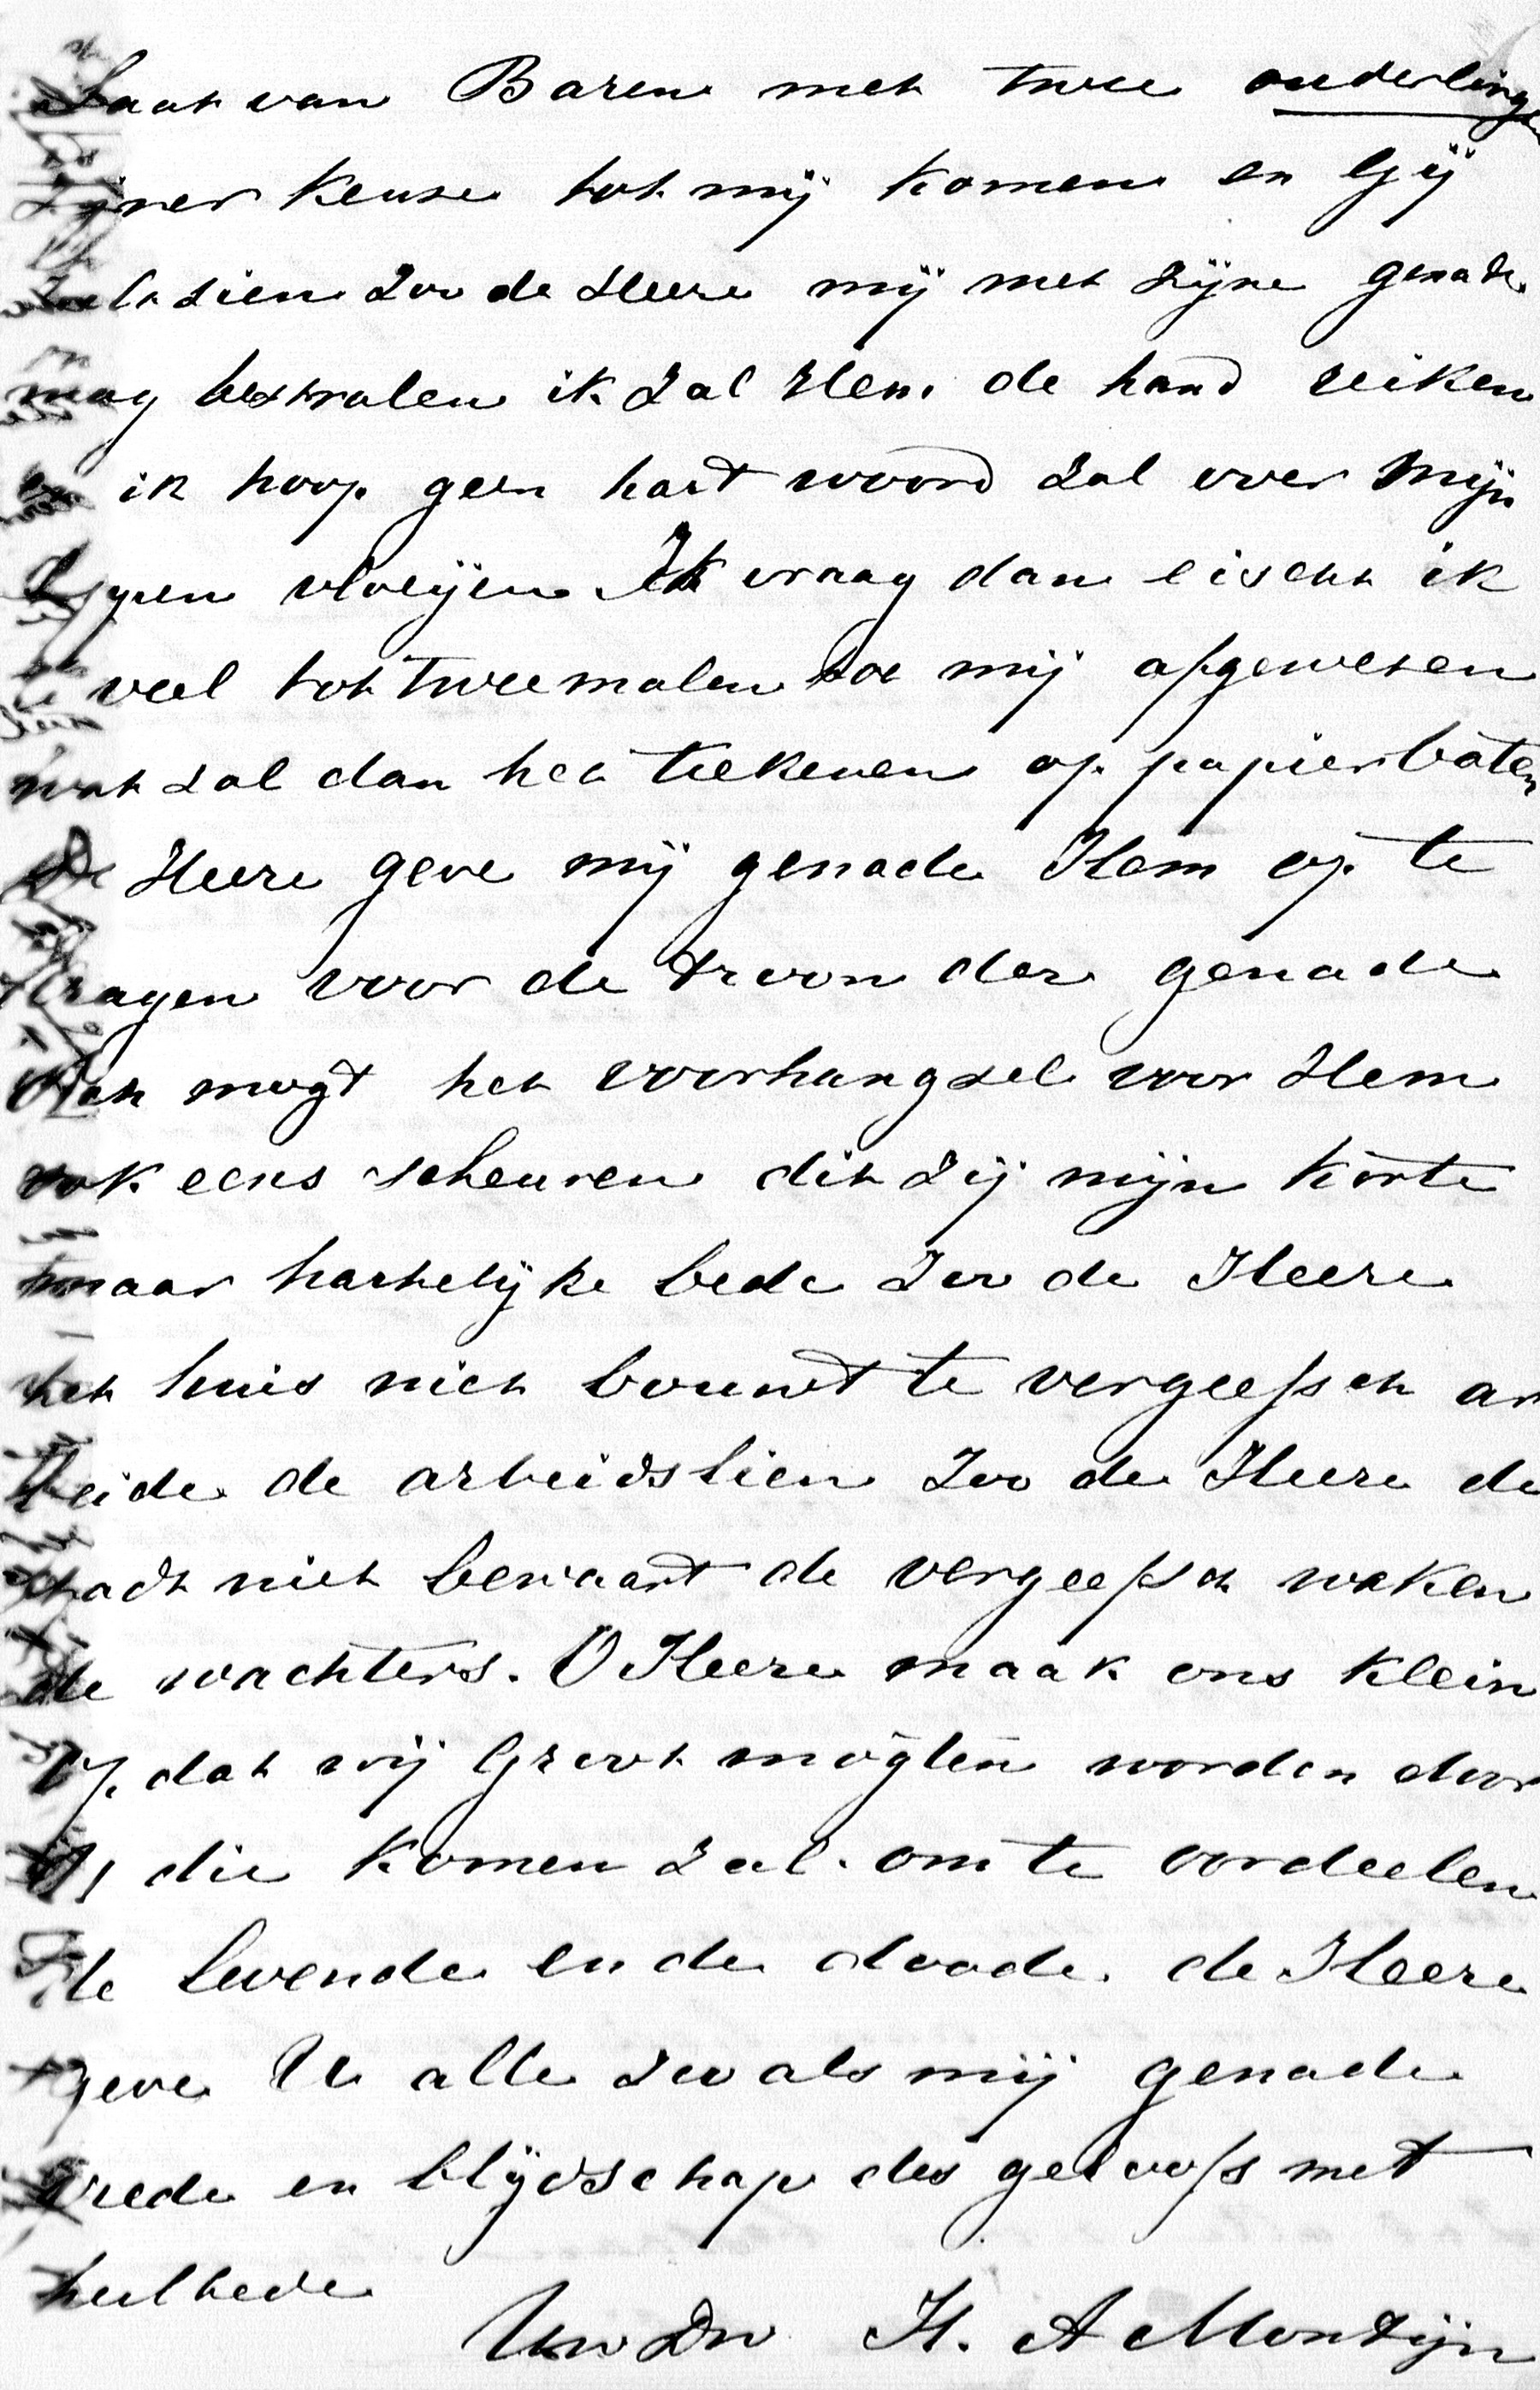 Laat van Baren met twee ouderlingen
zijner keuze tot mij komen en Gij
zult zien Zoo de Heere mij met zijne genade
mag bestralen ik Zal Hem de hand reiken
ik hoop geen hart woord Zal over Mijn
lippen vloeijen Ik vraag dan eischt ik
veel tot tweemalen toe mij afgewesen
wat zal dan het teekenen op papier baten
De Heere geve mij genade Hem op te
dragen voor de troon der genade
mogt het voorhangsel voor Hem
ook eens scheuren dit Zij mijn korte
maar hartelijke bede Zoo de Heere
het huis niet bouwt te vergeefsch ar
beide de arbeidslien Zoo de Heere de
stadt niet bewaart de vergeefsch waken
de wachters. O Heere maak ons klein
op dat wij Groot mogten worden door
die komen Zal om te oordeelen
de levende en de doode. de Heere
geve U alle Zoo als mij genade
vrede en blijdschap des geloofs met
heilbede
Uw Dw H. A Montijn